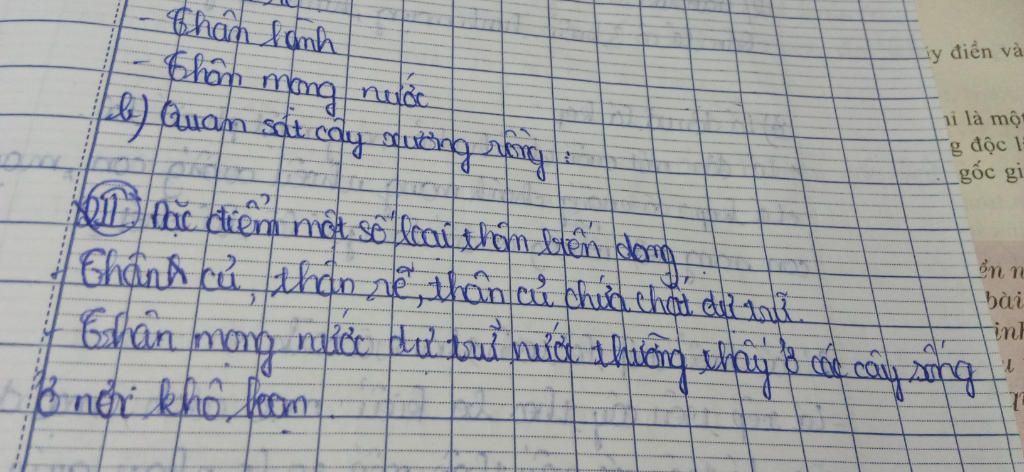 - Thân lành
- Thân mọng nước
b) Quan sát cây xương rồng:
II) Đặc điểm một số loại thân biến dạng.
+ Thành củ, thân rễ, thân củ chứa chất dự trữ.
+ Thân mọng nước dự trữ nước thường thấy ở các cây sống
ở nơi khô
iy điển và
ni là một
g độc l
gốc gi
ển n
bài
inh